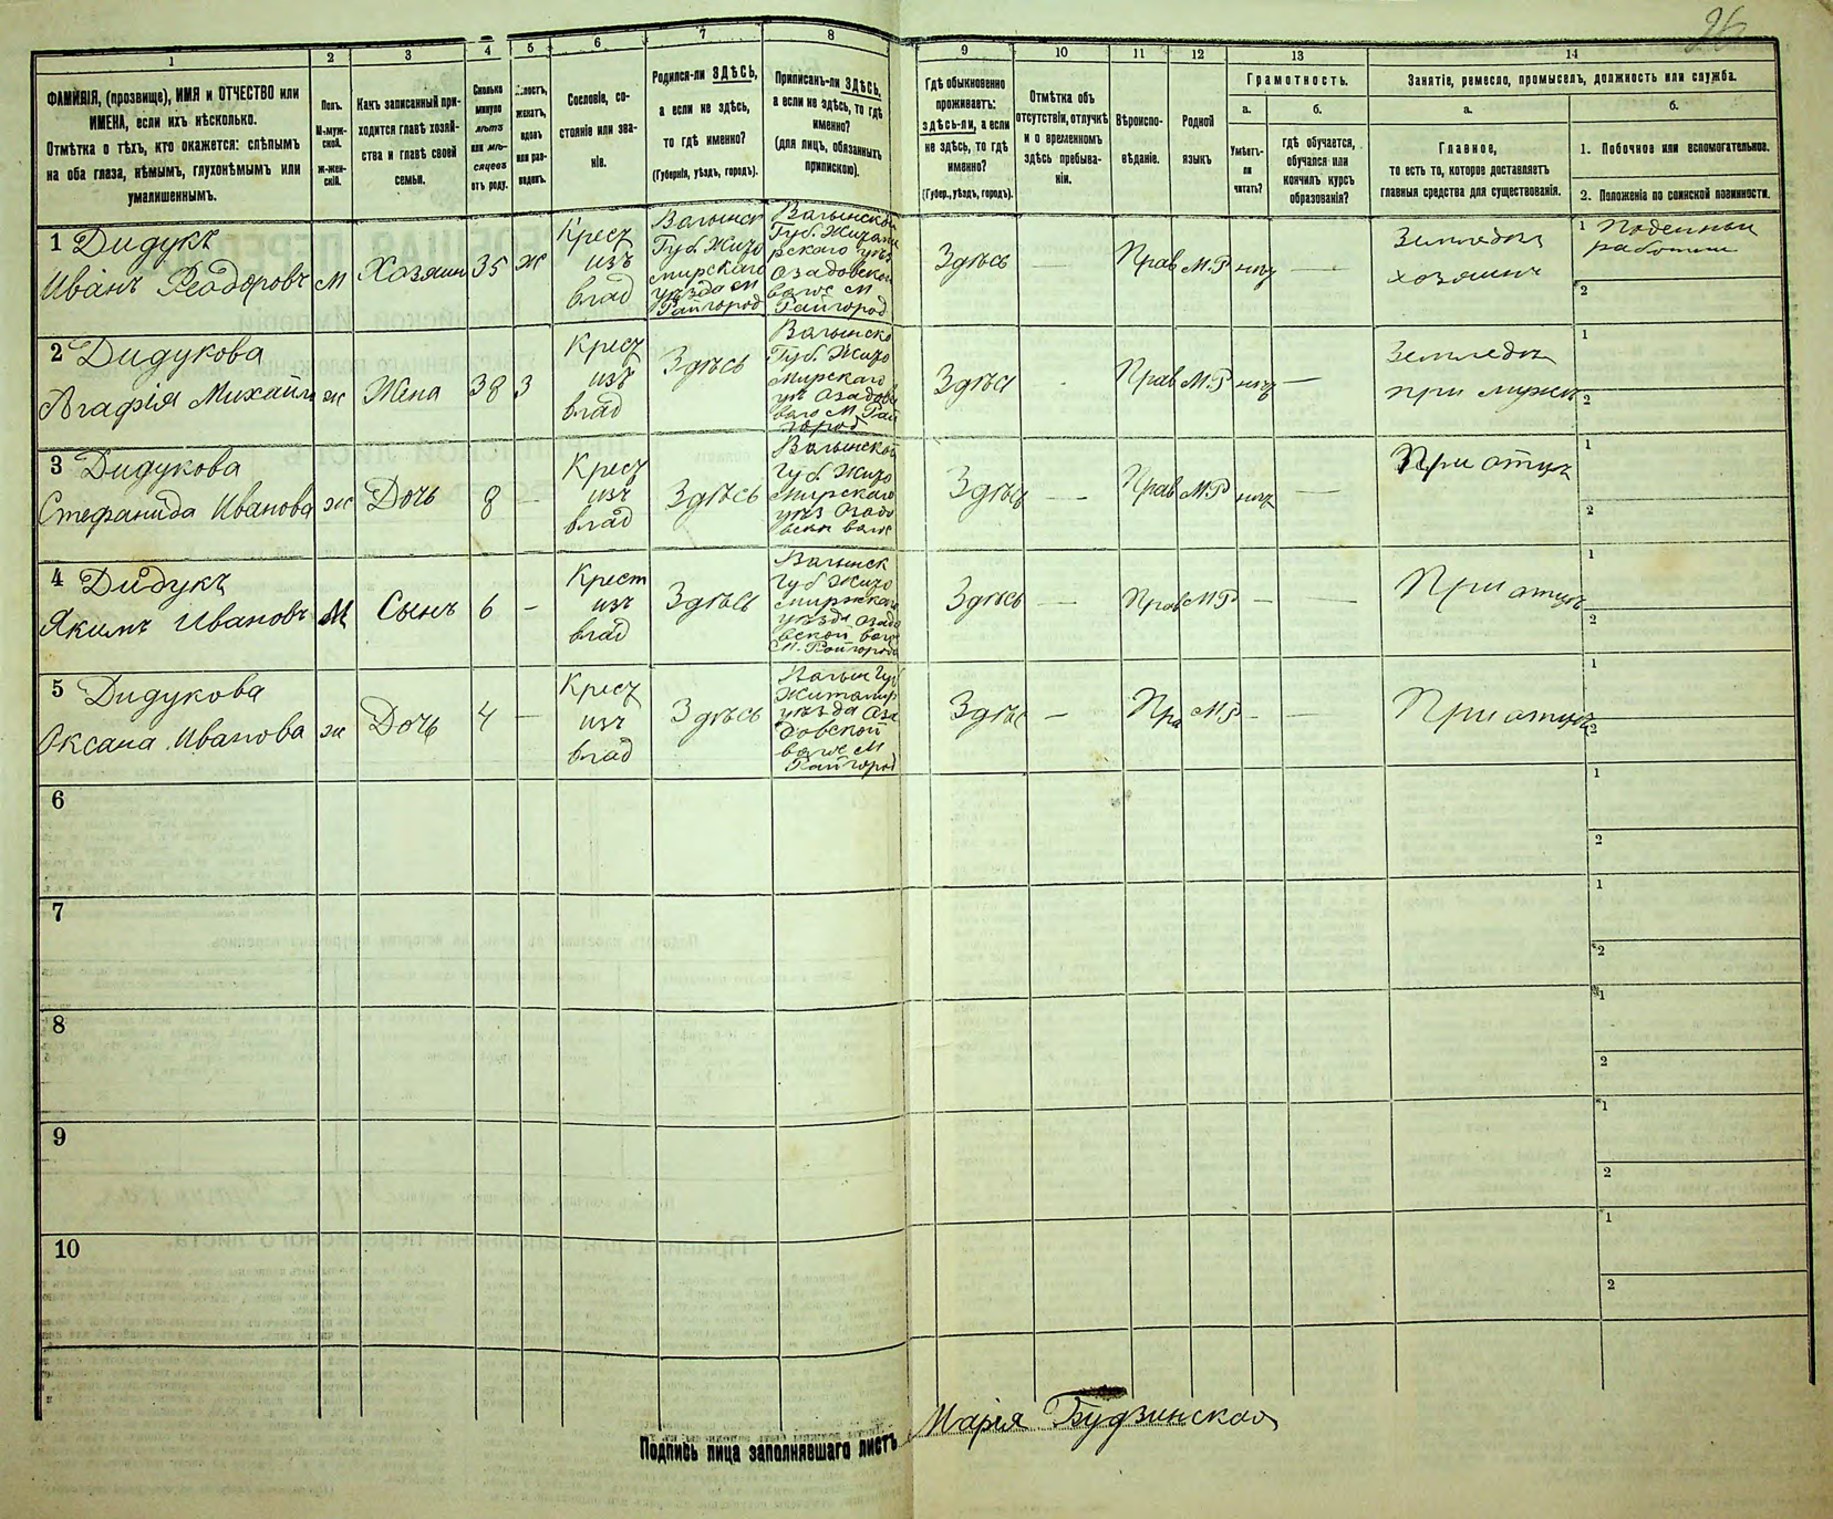 26
1 2 3 4 5 6 7 8 9 10 11 12 13 14
ФАМИЛІЯ, (прозвище), ИМЯ и ОТЧЕСТВО или
ИМЕНА, если ихъ нѣсколько.
Отмѣтка о тѣхъ, кто окажется: слѣпымъ
на оба глаза, нѣмымъ, глухонѣмымъ или
умалишеннымъ.
Полъ.
М-муж-
ской.
Ж-жен-
скій.
Какъ записанный при-
ходится главѣ хозяй-
ства и главѣ своей
семьи.
Сколько
минуло
лѣтъ
или мѣ-
сяцевъ
отъ роду.
женатъ,
вдовъ
или раз-
веденъ.
Сословіе, со-
стояніе или зва-
ніе.
Родился-ли ЗДѢСЬ,
а если не здѣсь,
то гдѣ именно?
(Губернія, уѣздъ, городъ).
Приписанъ-ли ЗДѢСЬ,
а если не здѣсь, то гдѣ
именно?
(для лицъ, обязанныхъ
припискою).
Гдѣ обыкновенно
проживаетъ:
здѣсь-ли, а если
не здѣсь, то гдѣ
именно?
(Губер., уѣздъ, городъ).
Отмѣтка объ
отсутствіи, отлучкѣ
и о временномъ
здѣсь пребыва-
ніи.
Вѣроиспо-
вѣданіе.
Родной
языкъ.
Грамотность.
а. б.
Умѣетъ-
ли
читать?
гдѣ обучается,
обучался или
кончилъ курсъ
образованія?
Занятіе, ремесло, промыселъ, должность или служба.
а. б.
Главное,
то есть то, которое доставляетъ
главныя средства для существованія.
1. Побочное или вспомогательное.
2. Положеніе по воинской повинности.
1 Дидукъ
Иванъ Ѳеодоровъ
М
Хозяин
35
ж
Крест
изъ
влад
Волынск
Губ. Жито
мирскаго
уѣзда м
Райгород
Волынской
Губ. Житоми
рскаго уѣз
волос м
Райгород
Здѣсь
—
Прав
М.Р
нѣтъ
—
Земледѣл
хозяинъ
1 Поденный
работник
2
2 Дидукова
Агафія Михайл
ж
Жена
38
З
Крест
изъ
влад
Здѣсь
Волынско
Губ. Жито
мирскаго
воло м Рай
город
Здѣсь
Прав
М.Р
нѣтъ
—
Земледѣл
при мужѣ
1
2
3 Дидукова
Стефанида Иванова
ж
Дочь
8
—
Крест
изъ
влад
Здѣсь
Волынской
Губ. Жито
мирскаго
Здѣсь
—
Прав
М.Р
нѣтъ
—
При отцѣ
1
2
4 Дидукъ
Якимъ Ивановъ
М
Сынъ
6
—
Крест
изъ
влад
Здѣсь
Волынск
Губ Жито
мирскаго
уѣзда
м. Райгорода
Здѣсь
—
Прав
М.Р
—
—
При отцѣ
1
2
5 Дидукова
Оксана Иванова
ж
Дочь
4
—
Крест
изъ
влад
Здѣсь
Волын Губ
Житомир
уѣзда
волос м
Райгород
Здѣс
—
Пра
М.Р
—
—
При отцѣ
1
2
6
1
2
7
1
2
8
1
2
9
1
2
10
1
2
Подпись лица заполнявшаго листъ Марія Будзинская